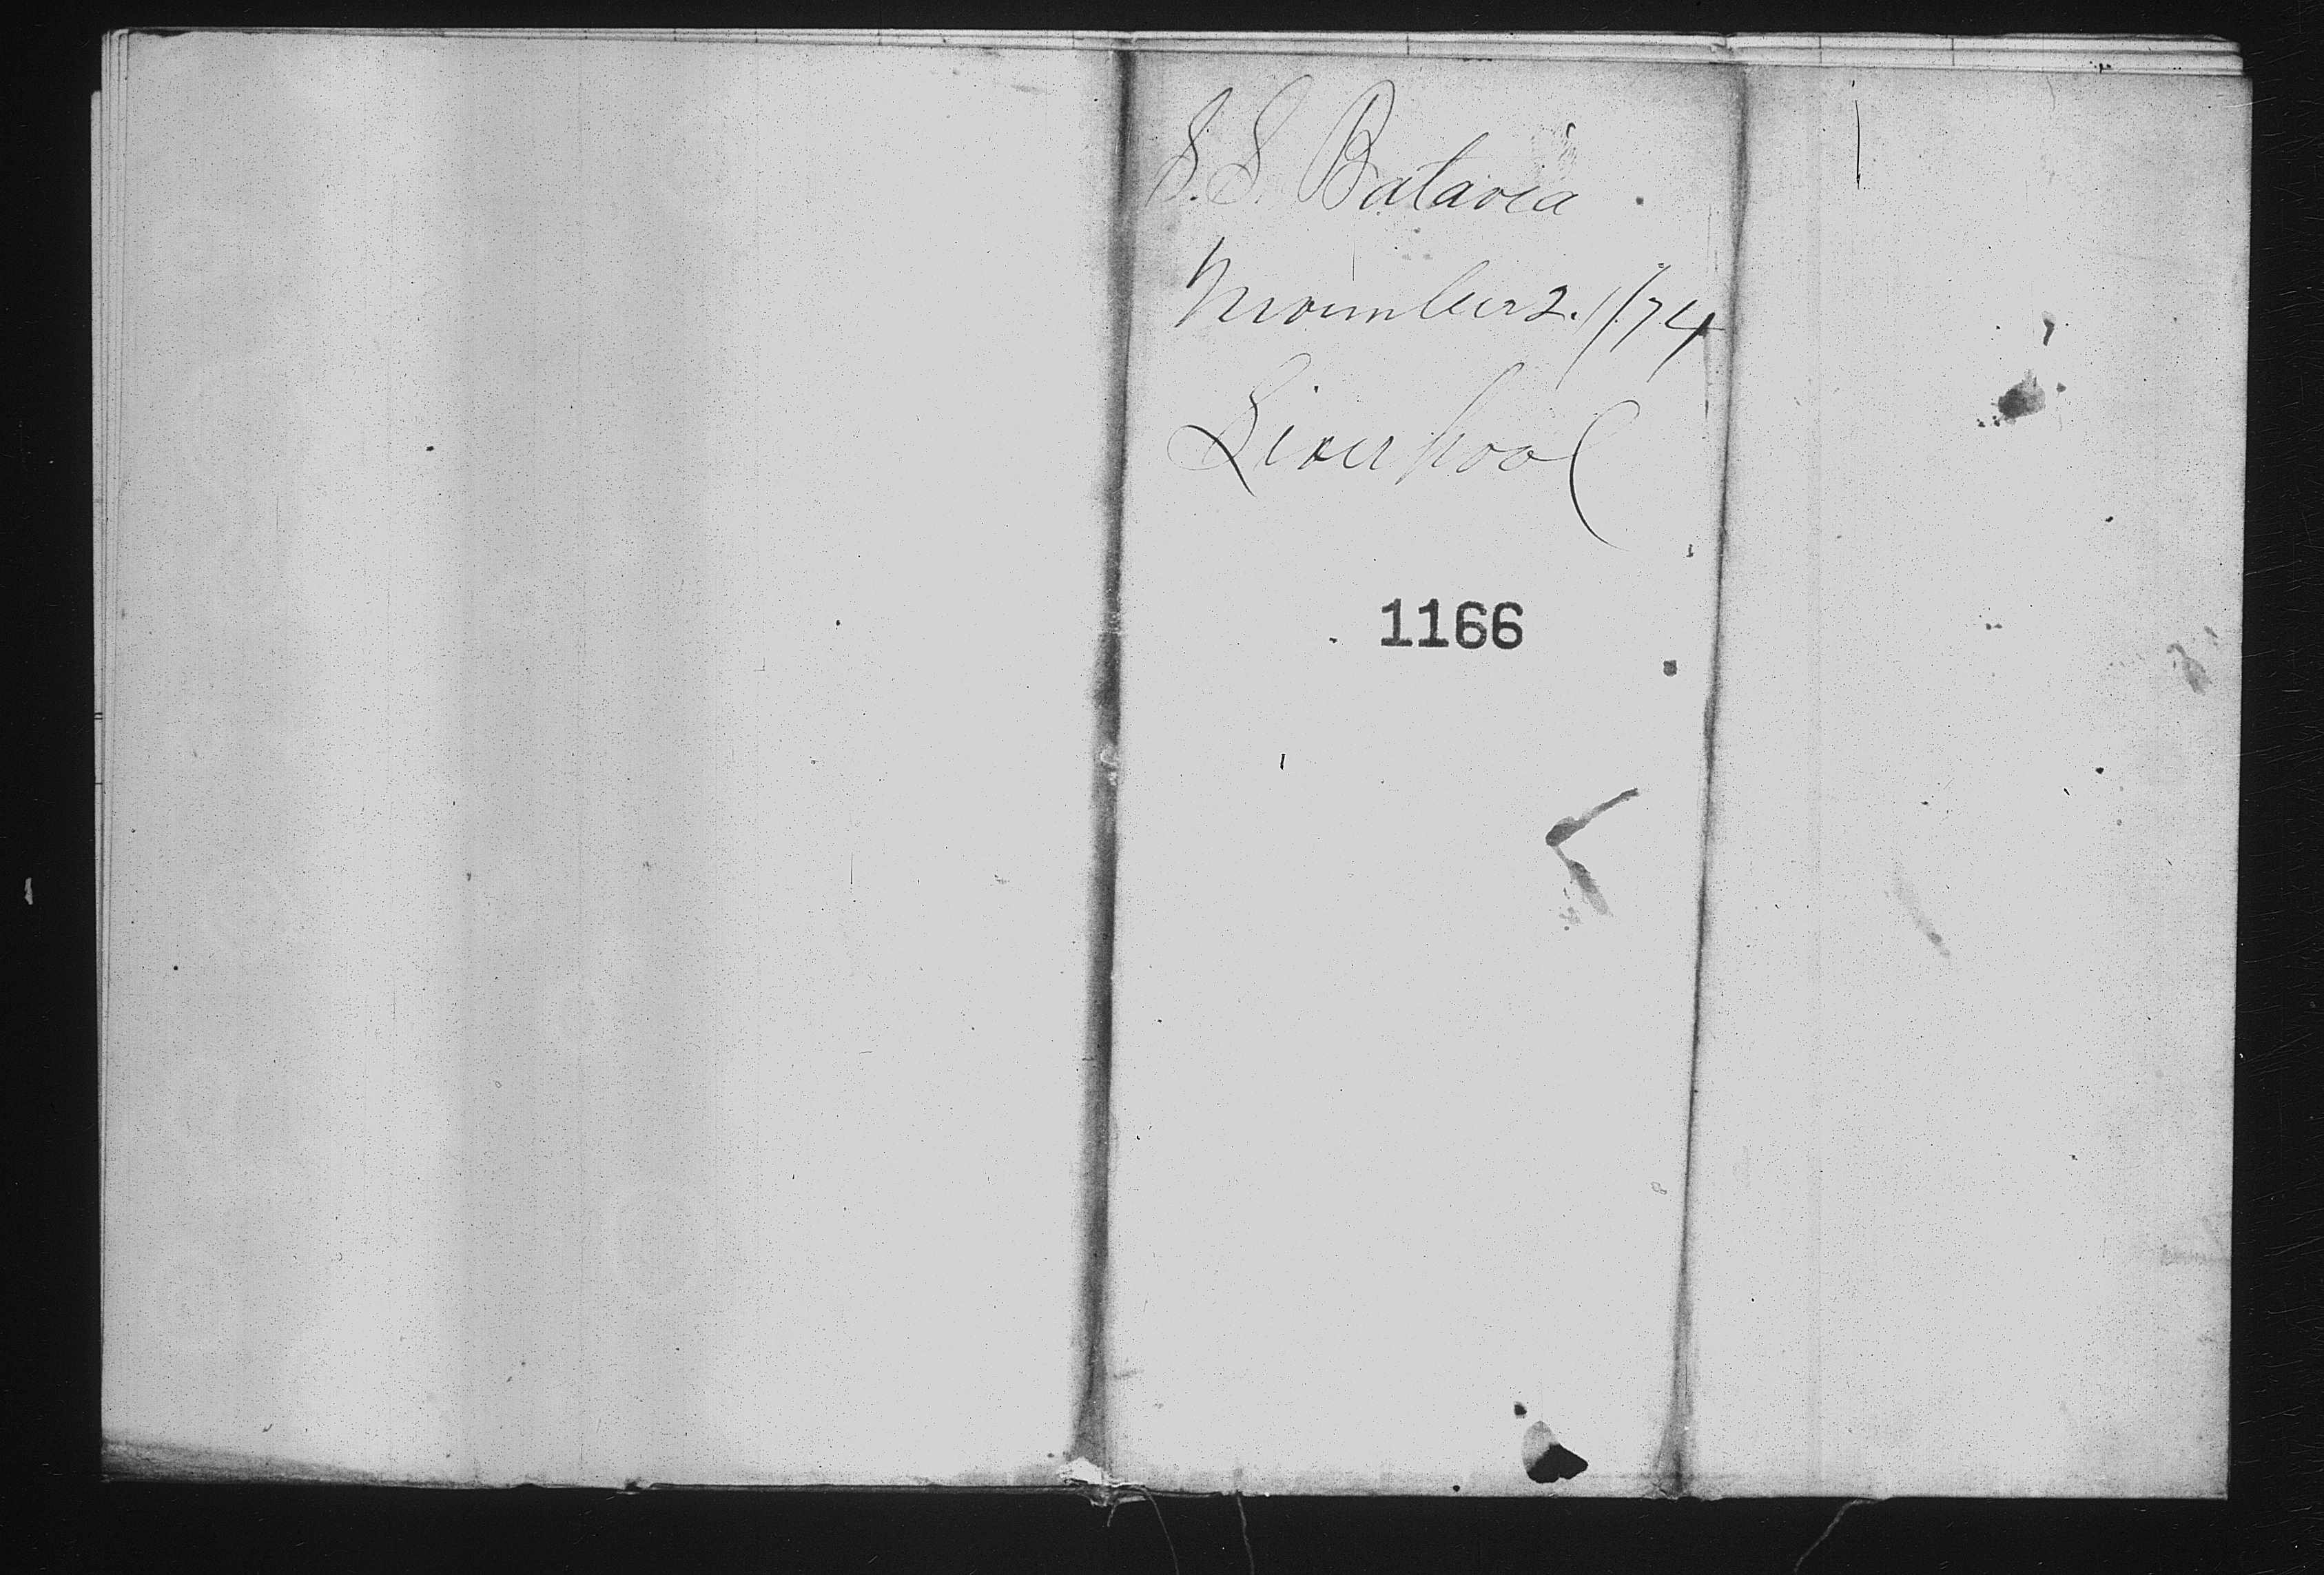 S.S. Batavia
November 2. //74
Liverpool
1166